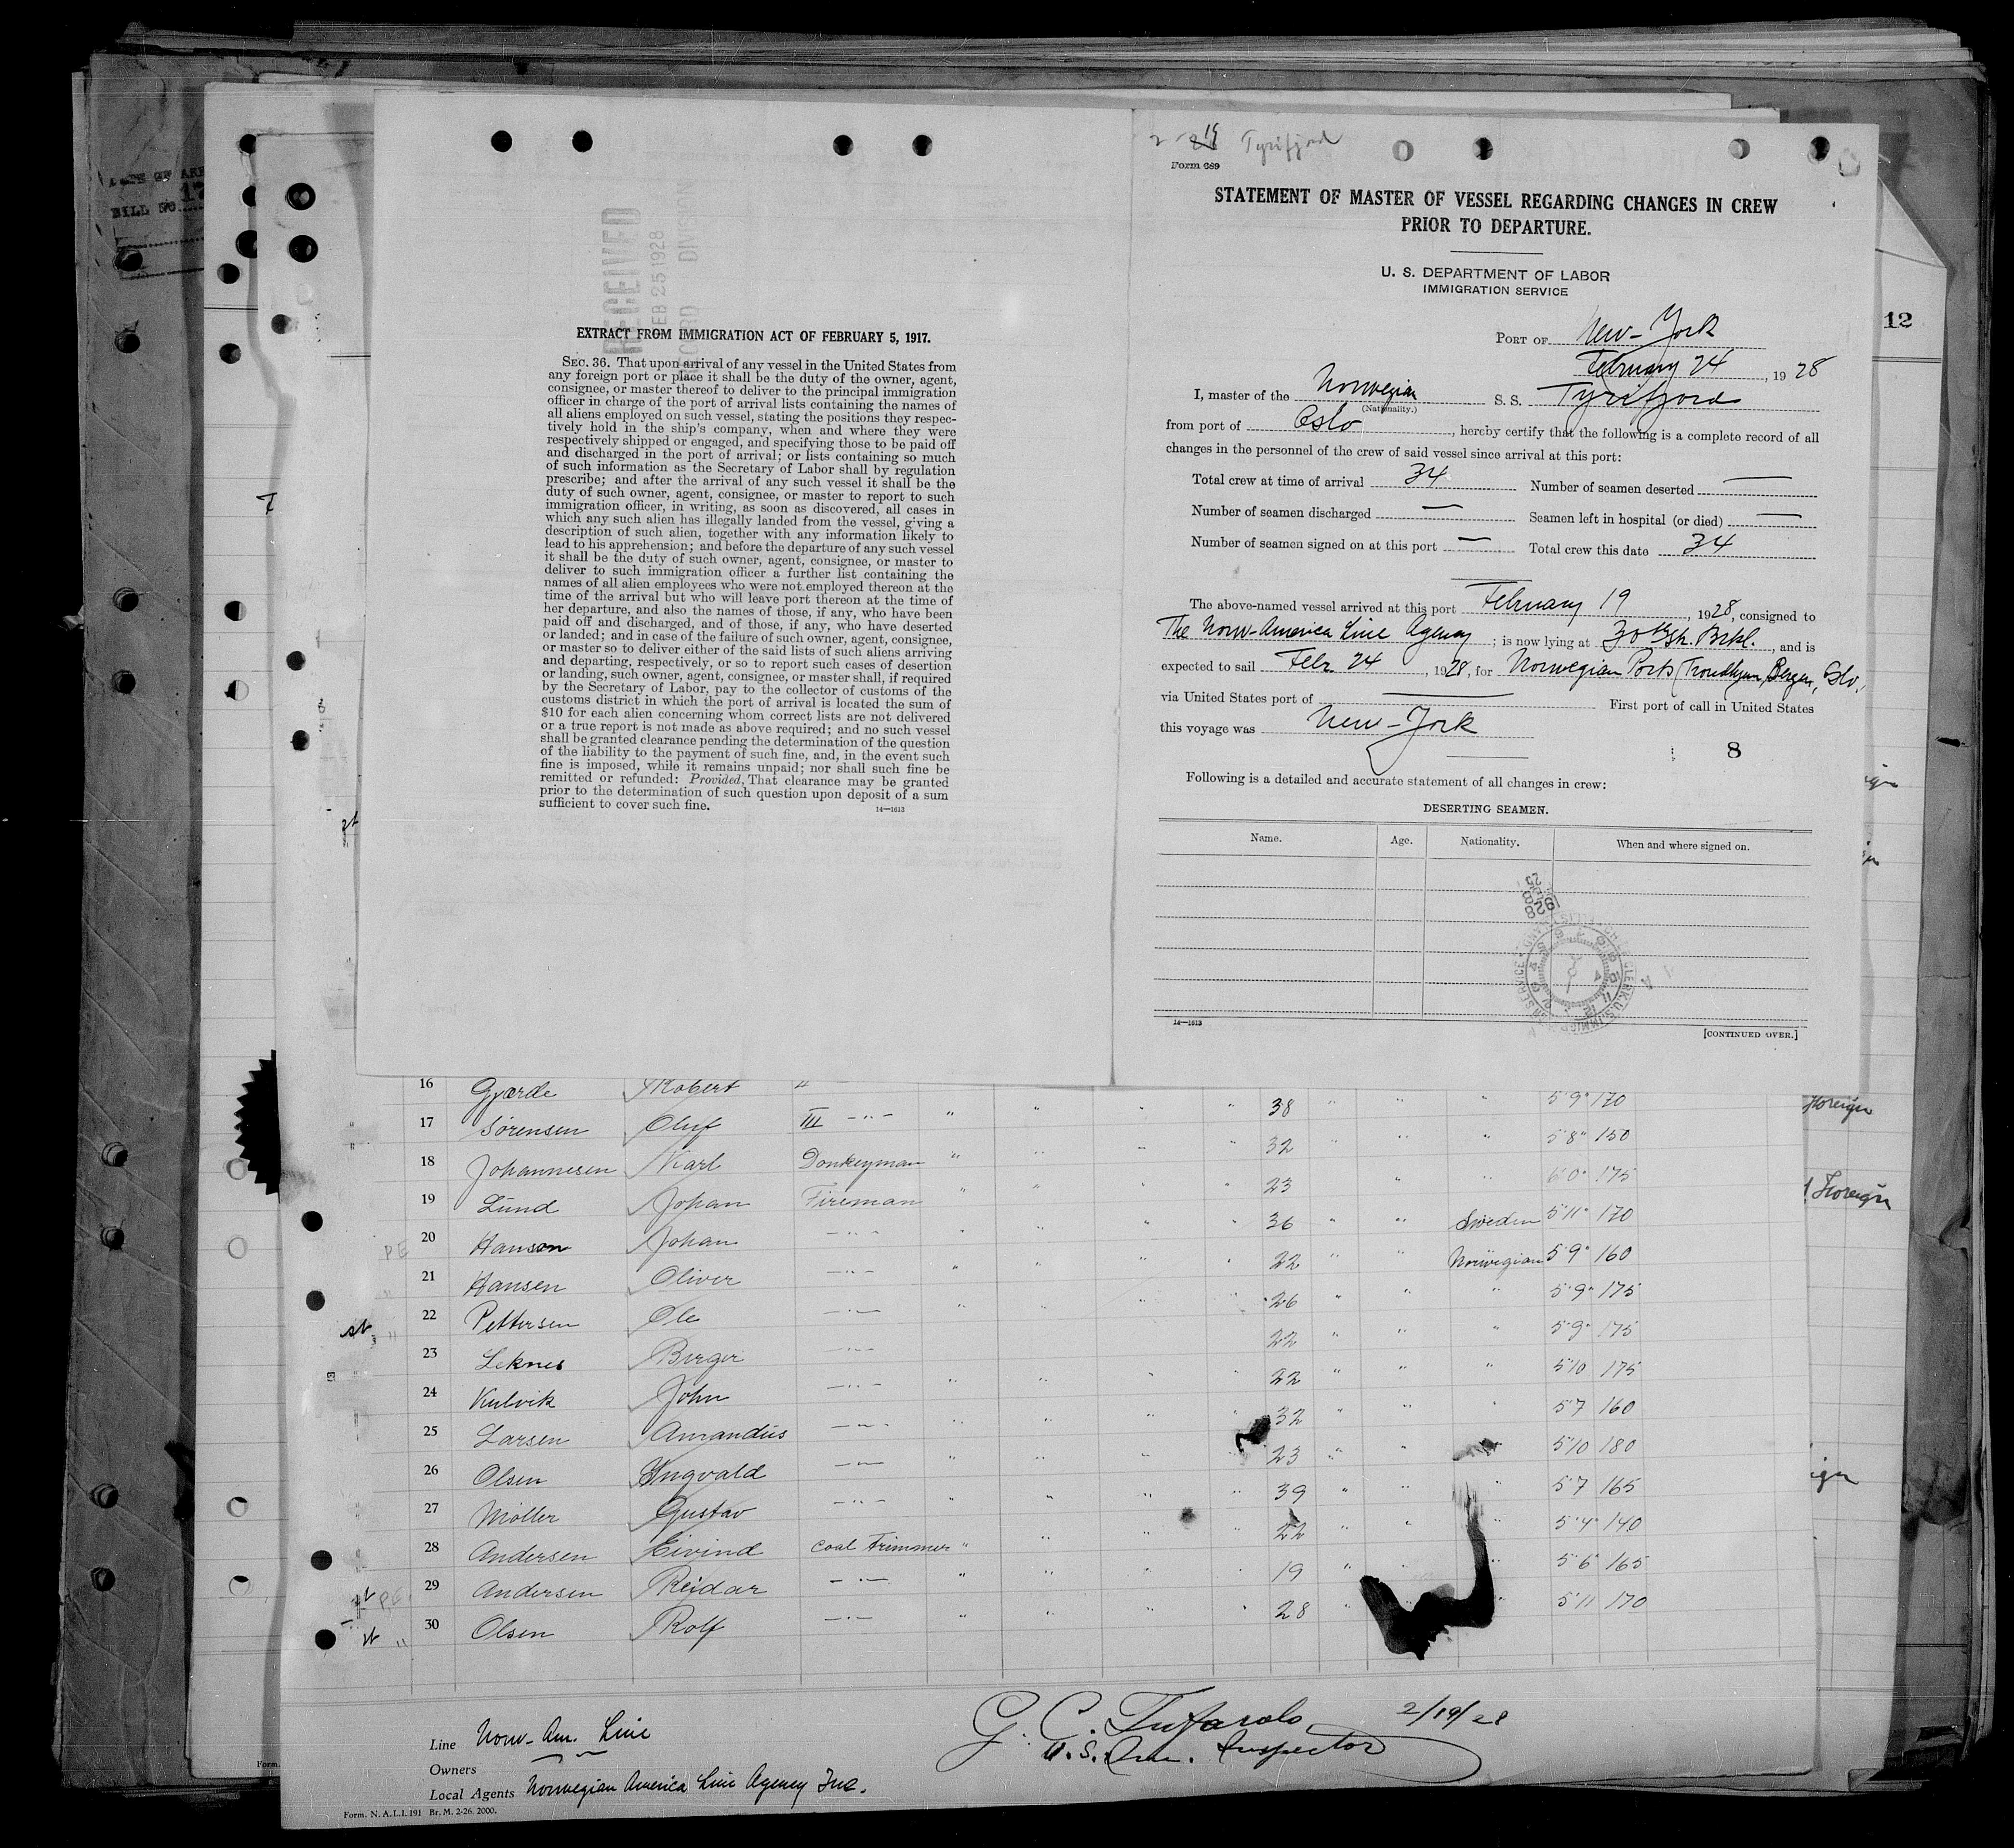 RECEIVED
FEB 25 1928
RECORD DIVISION
EXTRACT FROM IMMIGRATION ACT OF FEBRUARY 5, 1917.
SEC. 36. That upon arrival of any vessel in the United States from
any foreign port or place it shall be the duty of the owner, agent,
consignee, or master thereof to deliver to the principal immigration
officer in charge of the port of arrival lists containing the names of
all aliens employed on such vessel, stating the positions they respec-
tively hold in the ship's company, when and where they were
respectively shipped or engaged, and specifying those to be paid off
and discharged in the port of arrival; or lists containing so much
of such information as the Secretary of Labor shall by regulation
prescribe; and after the arrival of any such vessel it shall be the
duty of such owner, agent, consignee, or master to report to such
immigration officer, in writing, as soon as discovered, all cases in
which any such alien has illegally landed from the vessel, giving a
description of such alien, together with any information likely to
lead to his apprehension; and before the departure of any such vessel
it shall be the duty of such owner, agent, consignee, or master to
deliver to such immigration officer a further list containing the
names of all alien employees who were not employed thereon at the
time of the arrival but who will leave port thereon at the time of
her departure, and also the names of those, if any, who have been
paid off and discharged, and of those, if any, who have deserted
or landed; and in case of the failure of such owner, agent, consignee,
or master so to deliver either of the said lists of such aliens arriving
and departing, respectively, or so to report such cases of desertion
or landing, such owner, agent, consignee, or master shall, if required
by the Secretary of Labor, pay to the collector of customs of the
customs district in which the port of arrival is located the sum of
$10 for each alien concerning whom correct lists are not delivered
or a true report is not made as above required; and no such vessel
shall be granted clearance pending the determination of the question
of the liability to the payment of such fine, and, in the event such
fine is imposed, while it remains unpaid; nor shall such fine be
remitted or refunded: Provided, That clearance may be granted
prior to the determination of such question upon deposit of a sum
sufficient to cover such fine.
14—1613
Tyrifjord
Form 689
STATEMENT OF MASTER OF VESSEL REGARDING CHANGES IN CREW
PRIOR TO DEPARTURE.
U. S. DEPARTMENT OF LABOR
IMMIGRATION SERVICE
PORT OF New-York
February 24, 1928
I, master of the Norwegian S. S. Tyrifjord
(Nationality.)
from port of Oslo, hereby certify that the following is a complete record of all
changes in the personnel of the crew of said vessel since arrival at this port:
Total crew at time of arrival 34 Number of seamen deserted —
Number of seamen discharged — Seamen left in hospital (or died) —
Number of seamen signed on at this port — Total crew this date 34
The above-named vessel arrived at this port February 19, 1928, consigned to
The Norw-America Line Agency; is now lying at 30th Str. Brkl., and is
expected to sail Febr. 24, 1928, for Norwegian Ports (Trondhjem, Bergen, Oslo.
via United States port of — First port of call in United States
this voyage was New-York
8
Following is a detailed and accurate statement of all changes in crew:
DESERTING SEAMEN.
Name. Age. Nationality. When and where signed on.
1928
14—1613
[CONTINUED OVER.]
12
16 Gjærde Robert "
17 Sørensen Oluf III —"— " " " " 38 " " " 5'9" 170
18 Johannesen Karl Donkeyman " " " " 32 " " " 5'8" 150
19 Lund Johan Fireman " " " " 23 " " 6'0" 175
20 Hanson Johan —"— " " " " 36 " " Sweden 5'11" 170
21 Hansen Oliver —"— " " " " 22 " " Norwegian 5'9" 160
22 Pettersen Ole —"— " " " " 26 " " " 5'9" 175
23 Leknes Birger —"— 22 " " " 5'9" 175
24 Kulvik John —"— " " " " 22 " " " 5'10 175
25 Larsen Amandus —"— " " " 32 " " " 5'7 160
26 Olsen Yngvald —"— " " " 23 " " " 5'10 180
27 Møller Gustav —"— " " " " 39 " " " 5'7 165
28 Andersen Eivind Coal Trimmer " " " 22 " " 5'4" 140
29 Andersen Reidar —"— " " " 19 " " 5'6" 165
30 Olsen Rolf —"— " " " " 28 " 5'11 170
Foreign
Foreign
Line Norw-Am. Line
Owners
Local Agents Norwegian America Line Agency Inc.
G. C. Tufarolo 2/19/28
U. S. Imm. Inspector
Form. N. A. L. I. 191 Br. M. 2-26. 2000.